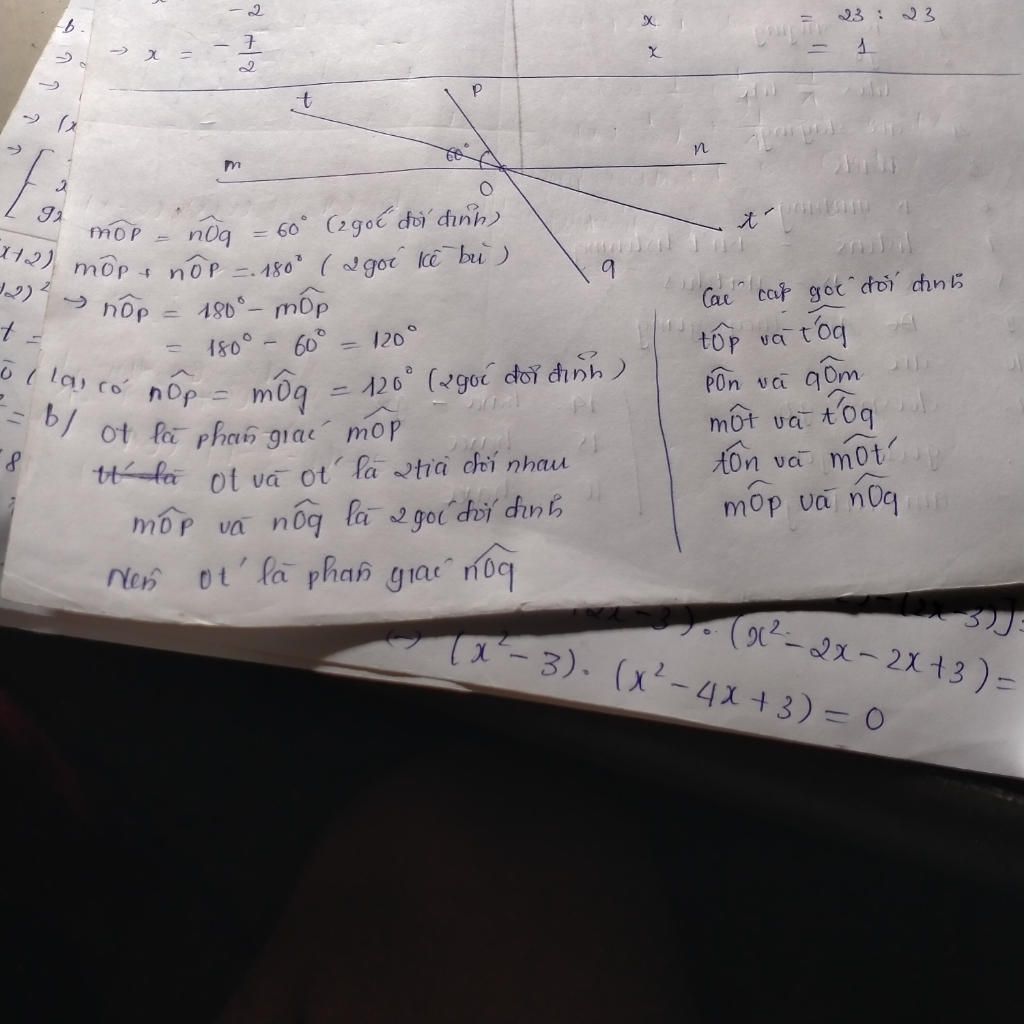 -2
→ x = -7/2
x = 23 : 23
x = 1
t
p
m
60°
n
O
t'
q
mÔp = nÔq = 60° (2 góc đối đỉnh)
mÔp + nÔp = 180° (2 góc kề bù)
→ nÔp = 180° - mÔp
= 180° - 60° = 120°
lại có nÔp = mÔq = 120° (2 góc đối đỉnh)
b/ Ot là phân giác mÔp
Ot và Ot' là 2 tia đối nhau
mÔp và nÔq là 2 góc đối đỉnh
Nên Ot' là phân giác nÔq
Các cặp góc đối đỉnh
tÔp và t'Ôq
pÔn và qÔm
mÔt và t'Ôq
tÔn và mÔt'
mÔp và nÔq
(x² - 2x - 2x + 3) =
(x² - 3). (x² - 4x + 3) = 0